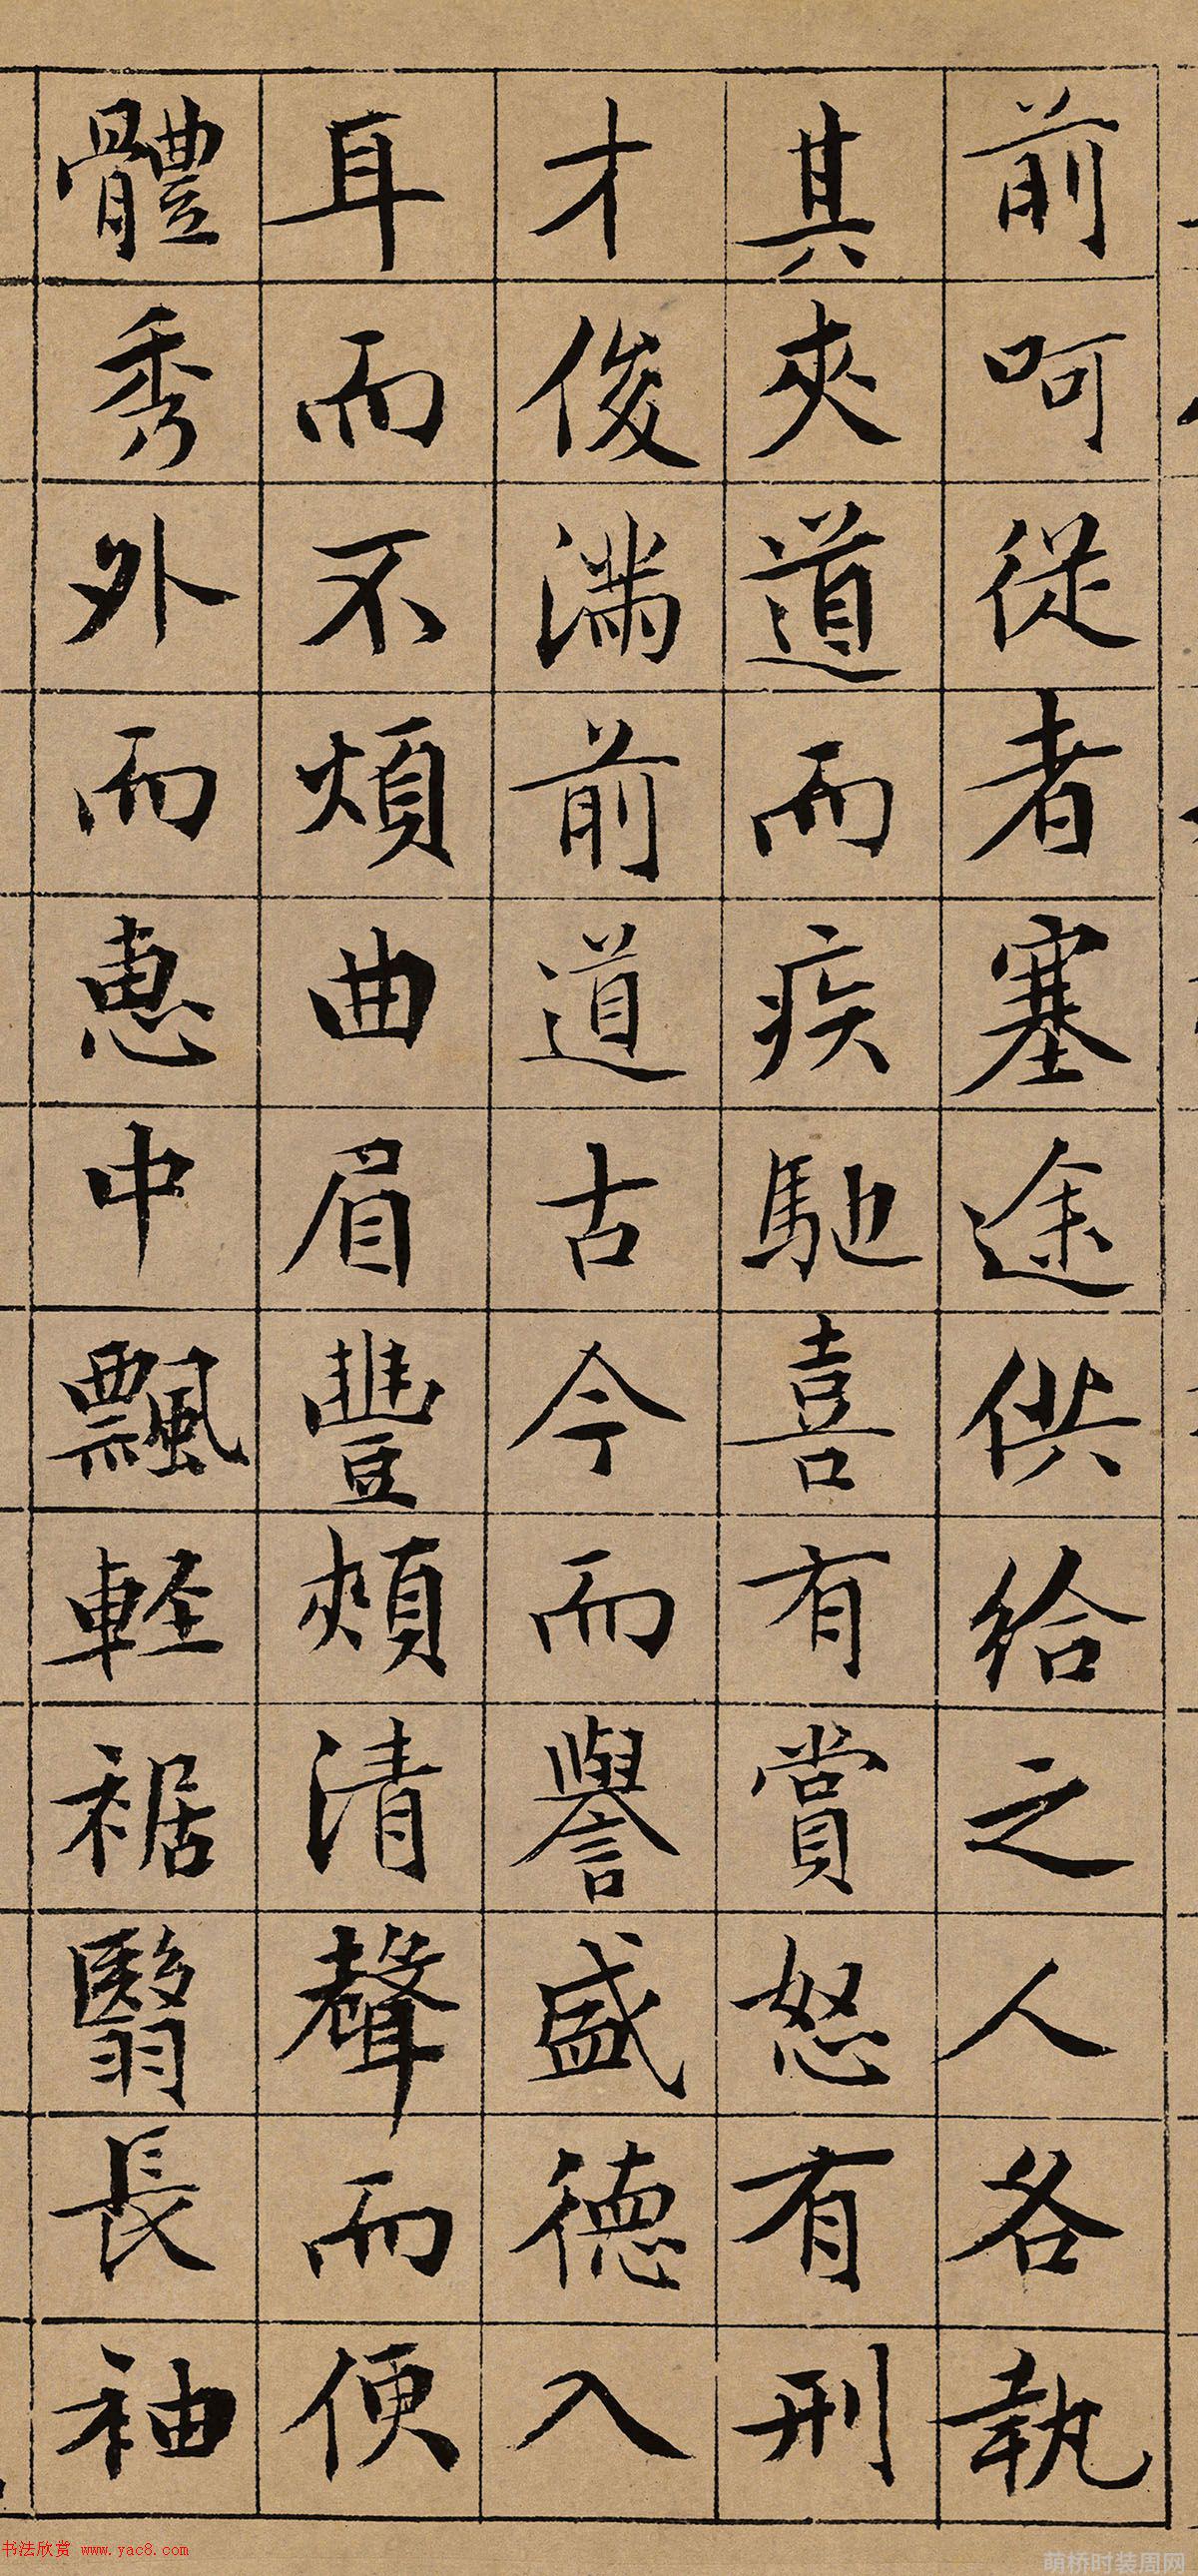 前呵從者塞途供給之人各執
其夾道而疾馳喜有賞怒有刑
才俊滿前道古今而譽盛德入
耳而不煩曲眉豐頰清聲而便
體秀外而惠中飄軽裾翳長袖
书法欣赏 www.yac8.com
萌桥时装周网